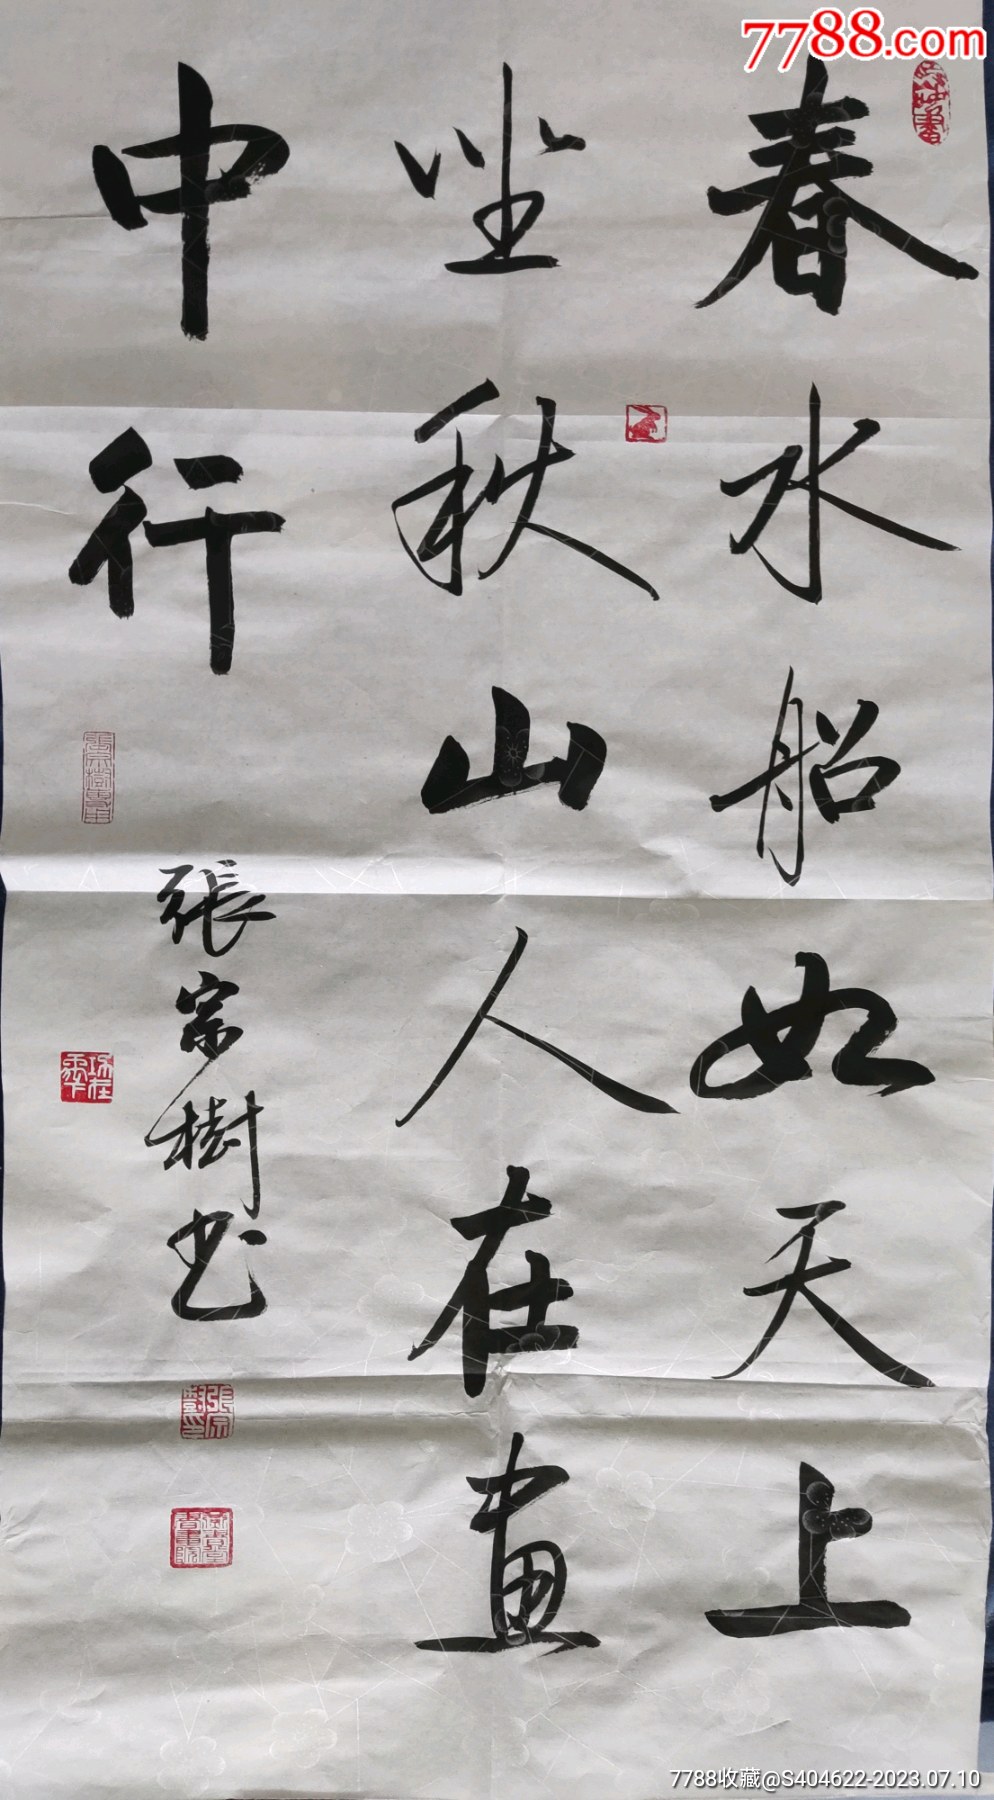 7788.com
春水船如天上
坐秋山人在畫
中行
張宗樹书
7788收藏@S404622-2023.07.10